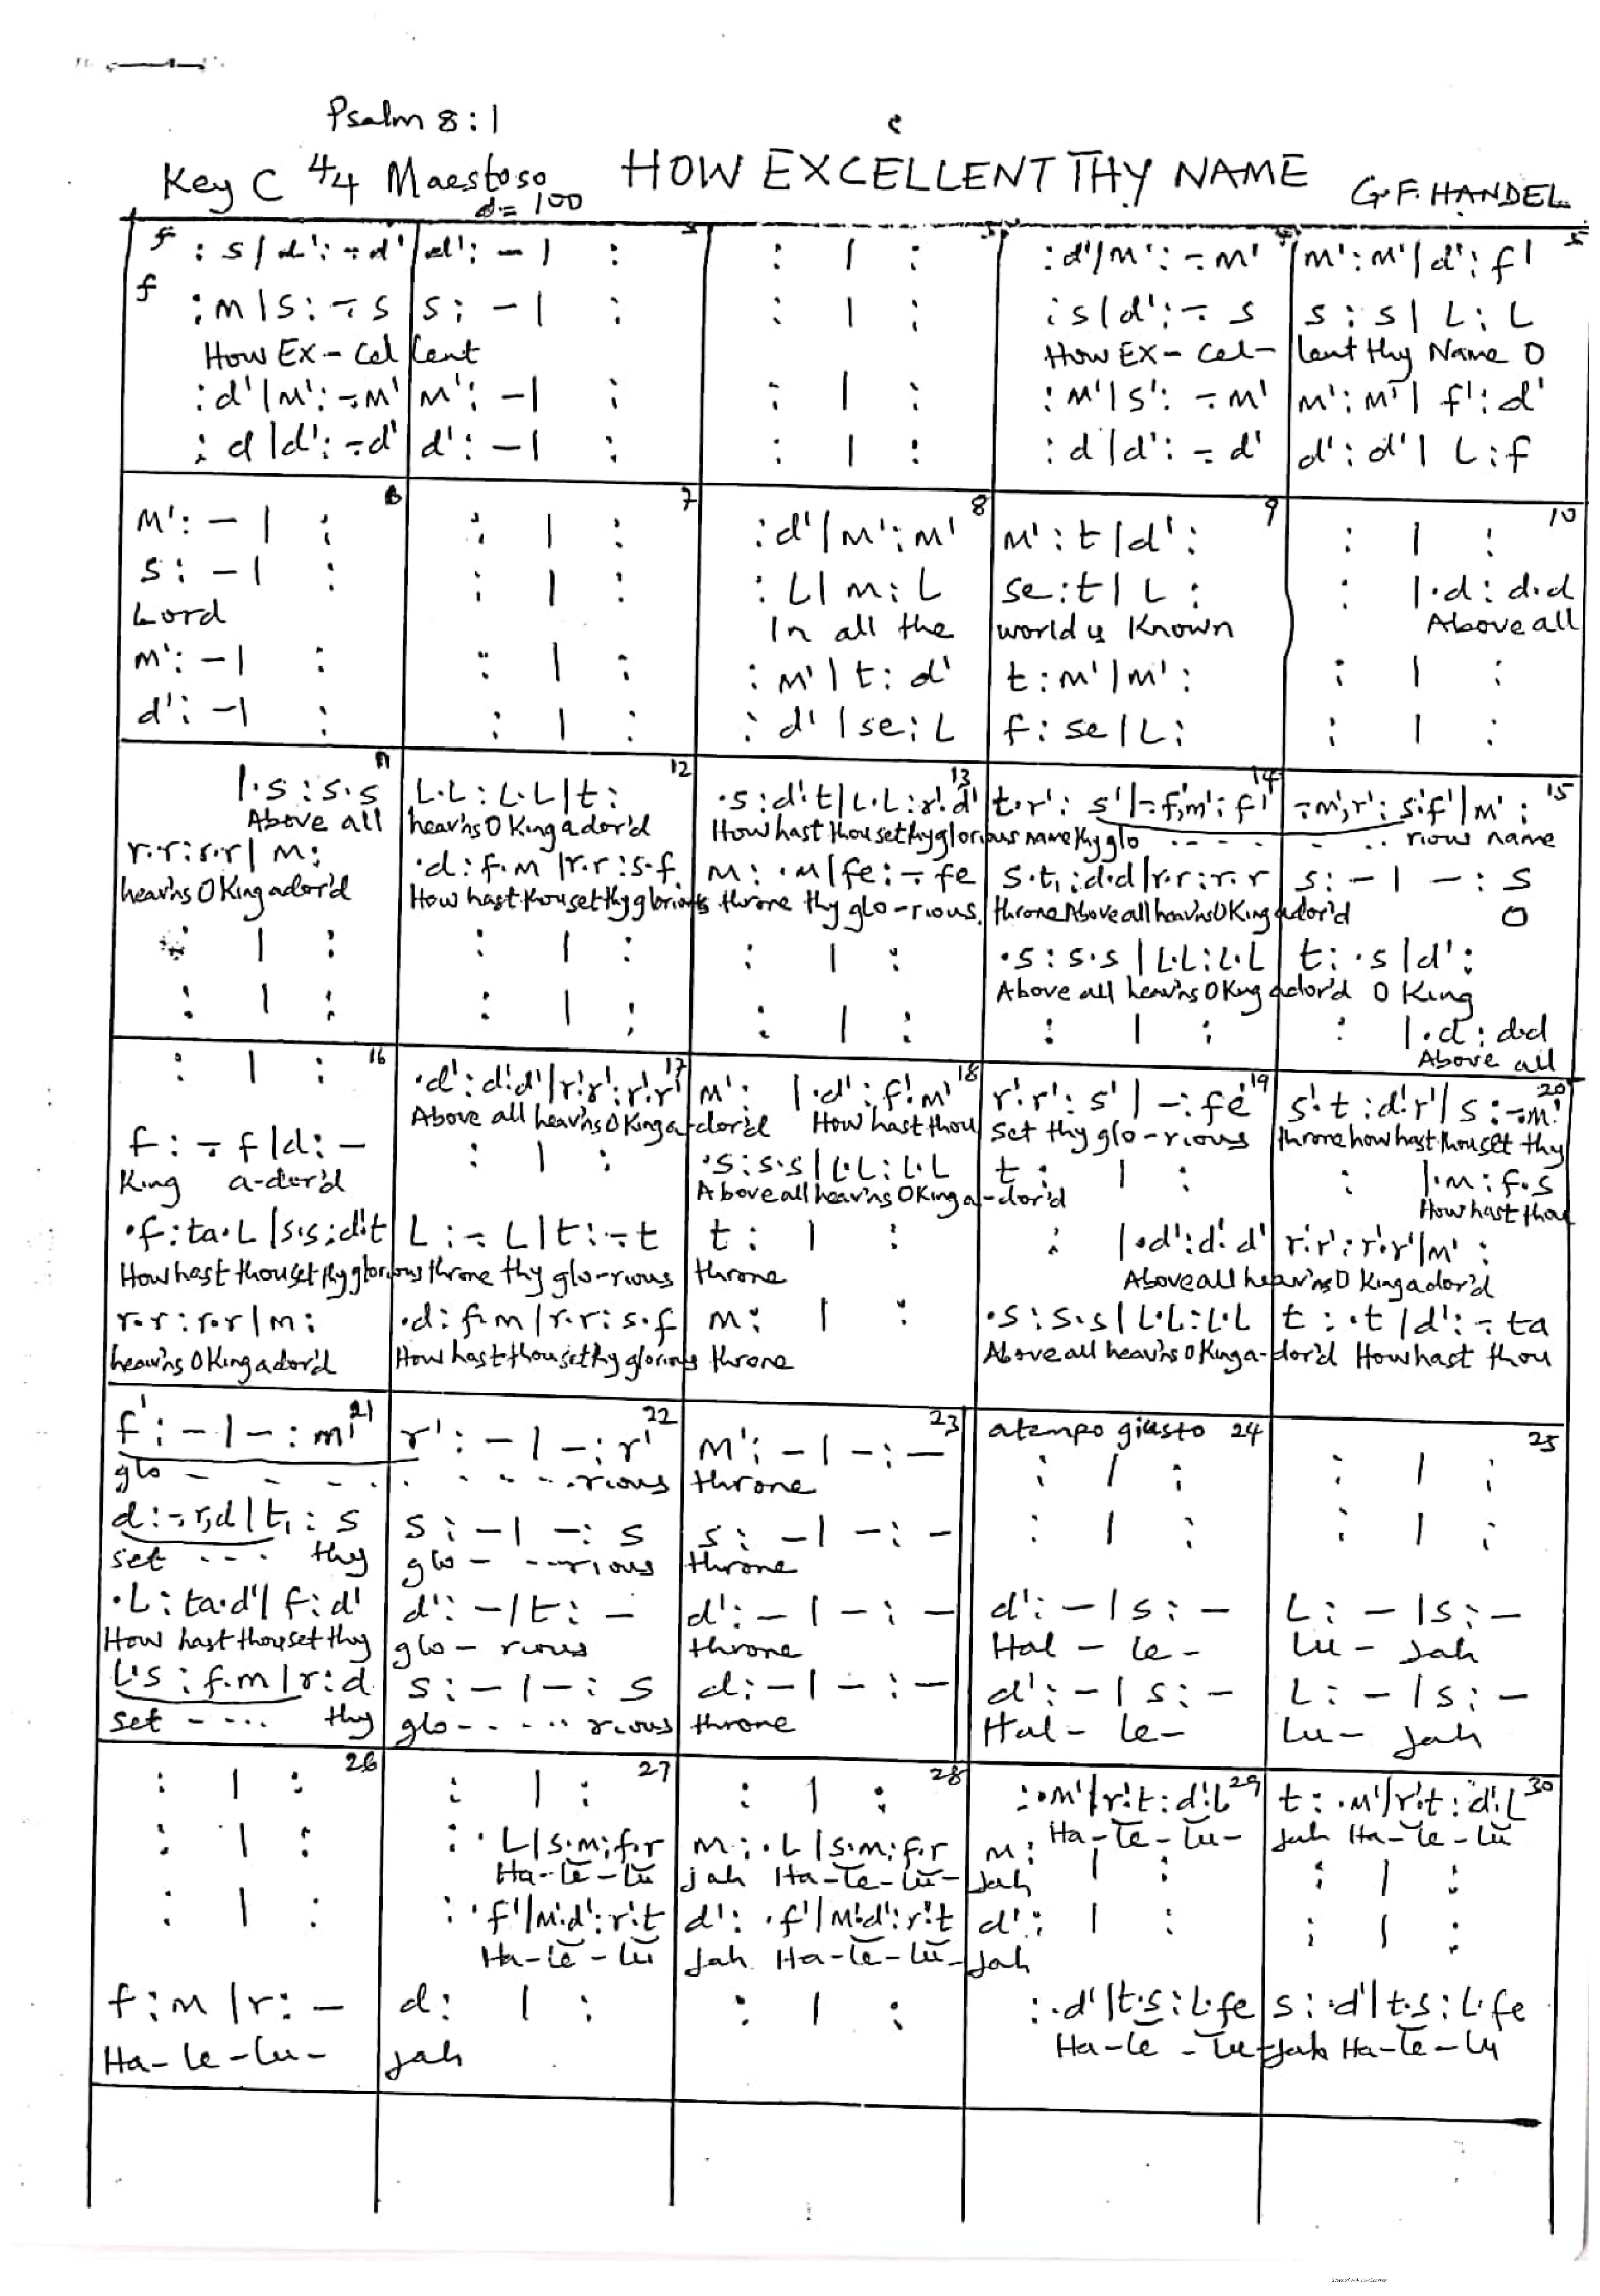 Psalm 8:1
Key C 4/4 Maestoso HOW EXCELLENT THY NAME G.F. HANDEL
d = 100
f :s|d':-.d'|d':-| : 2 : | : 3 :d'|m':-.m' 4 |m':m'|d':f' 5
f :m|s:-.s|s:-| : : | : :s|d':-.s|s:s|L:L
How Ex-cel lent How Ex-cel-lent thy Name O
:d'|m':-.m'|m':-| : : | : :m'|s':-.m'|m':m'|f':d'
:d|d':-.d'|d':-| : : | : :d|d':-.d'|d':d'|L:f
m':-| : 6 : | : 7 :d'|m':m' 8 m':t|d': 9 : | : 10
s:-| : : | : :L|m:L se:t|L: : |.d:d.d
Lord In all the world is Known Above all
m':-| : : | : :m'|t:d' t:m'|m': : | :
d':-| : : | : :d'|se:L f:se|L: : | :
|.s:s.s 11 L.L:L.L|t: 12 .s:d'.t|L.L:r'.d' 13 t.r':s'|-.f',m':f' 14 -.m',r':s'.f'|m': 15
Above all heav'ns O King ador'd How hast thou set thy glorious name thy glo - - - - rious name
r.r:r.r|m: .d:f.m|r.r:s.f m:.m|fe:-.fe s.t,:d.d|r.r:r.r s:-|-:s
heav'ns O King ador'd How hast thou set thy glorious throne thy glo-rious throne Above all heav'ns O King ador'd O
: | : : | : : | : .s:s.s|L.L:L.L t:.s|d':
Above all heav'ns O King ador'd O King
: | : : | : : | : : | : : |.d:d.d
Above all
: | : 16 .d':d'.d'|r'.r':r'.r' 17 m': |.d':f'.m' 18 r'.r':s'|-:fe' 19 s'.t:d'.r'|s:-.m' 20
Above all heav'ns O King a-dor'd How hast thou set thy glo-rious throne how hast thou set thy
f:-.f|d:- : | : .s:s.s|L.L:L.L t: | : : |.m:f.s
King a-dor'd Above all heav'ns O King a-dor'd How hast thou
.f:ta.L|s.s:d'.t L:-.L|t:-.t t: | : : |.d':d'.d' r'.r':r'.r'|m':
How hast thou set thy glorious throne thy glo-rious throne Above all heav'ns O King ador'd
r.r:r.r|m: .d:f.m|r.r:s.f m: | : .s:s.s|L.L:L.L t:.t|d':-.ta
heav'ns O King ador'd How hast thou set thy glorious throne Above all heav'ns O King a-dor'd How hast thou
f':-|-:m' 21 r':-|-:r' 22 m':-|-:- 23 atempo giusto 24 : | : 25
: | :
glo - - - - - - - rious throne
d:-.r,d|t,:s s:-|-:s s:-|-:- : | : : | :
set - - - thy glo - - - rious throne
.L:ta.d'|f:d' d':-|t:- d':-|-:- d':-|s:- L:-|s:-
How hast thou set thy glo-rious throne Hal-le-lu-jah
L.s:f.m|r:d s:-|-:s d:-|-:- d':-|s:- L:-|s:-
set - - - - thy glo - - - - - rious throne Hal-le-lu-jah
: | : 26 : | : 27 : | : 28 :.m'|r'.t:d'.L 29 t:.m'|r'.t:d'.L 30
Ha-le-lu-jah Ha-le-lu
: | : :.L|s.m:f.r m:.L|s.m:f.r m: | : : | :
Ha-le-lu jah Ha-le-lu-jah
: | : :.f'|m'.d':r'.t d':.f'|m'.d':r'.t d': | : : | :
Ha-le-lu jah Ha-le-lu-jah
f:m|r:- d: | : : | : :.d'|t.s:L.fe s:.d'|t.s:L.fe
Ha-le-lu- jah Ha-le-lu-jah Ha-le-lu